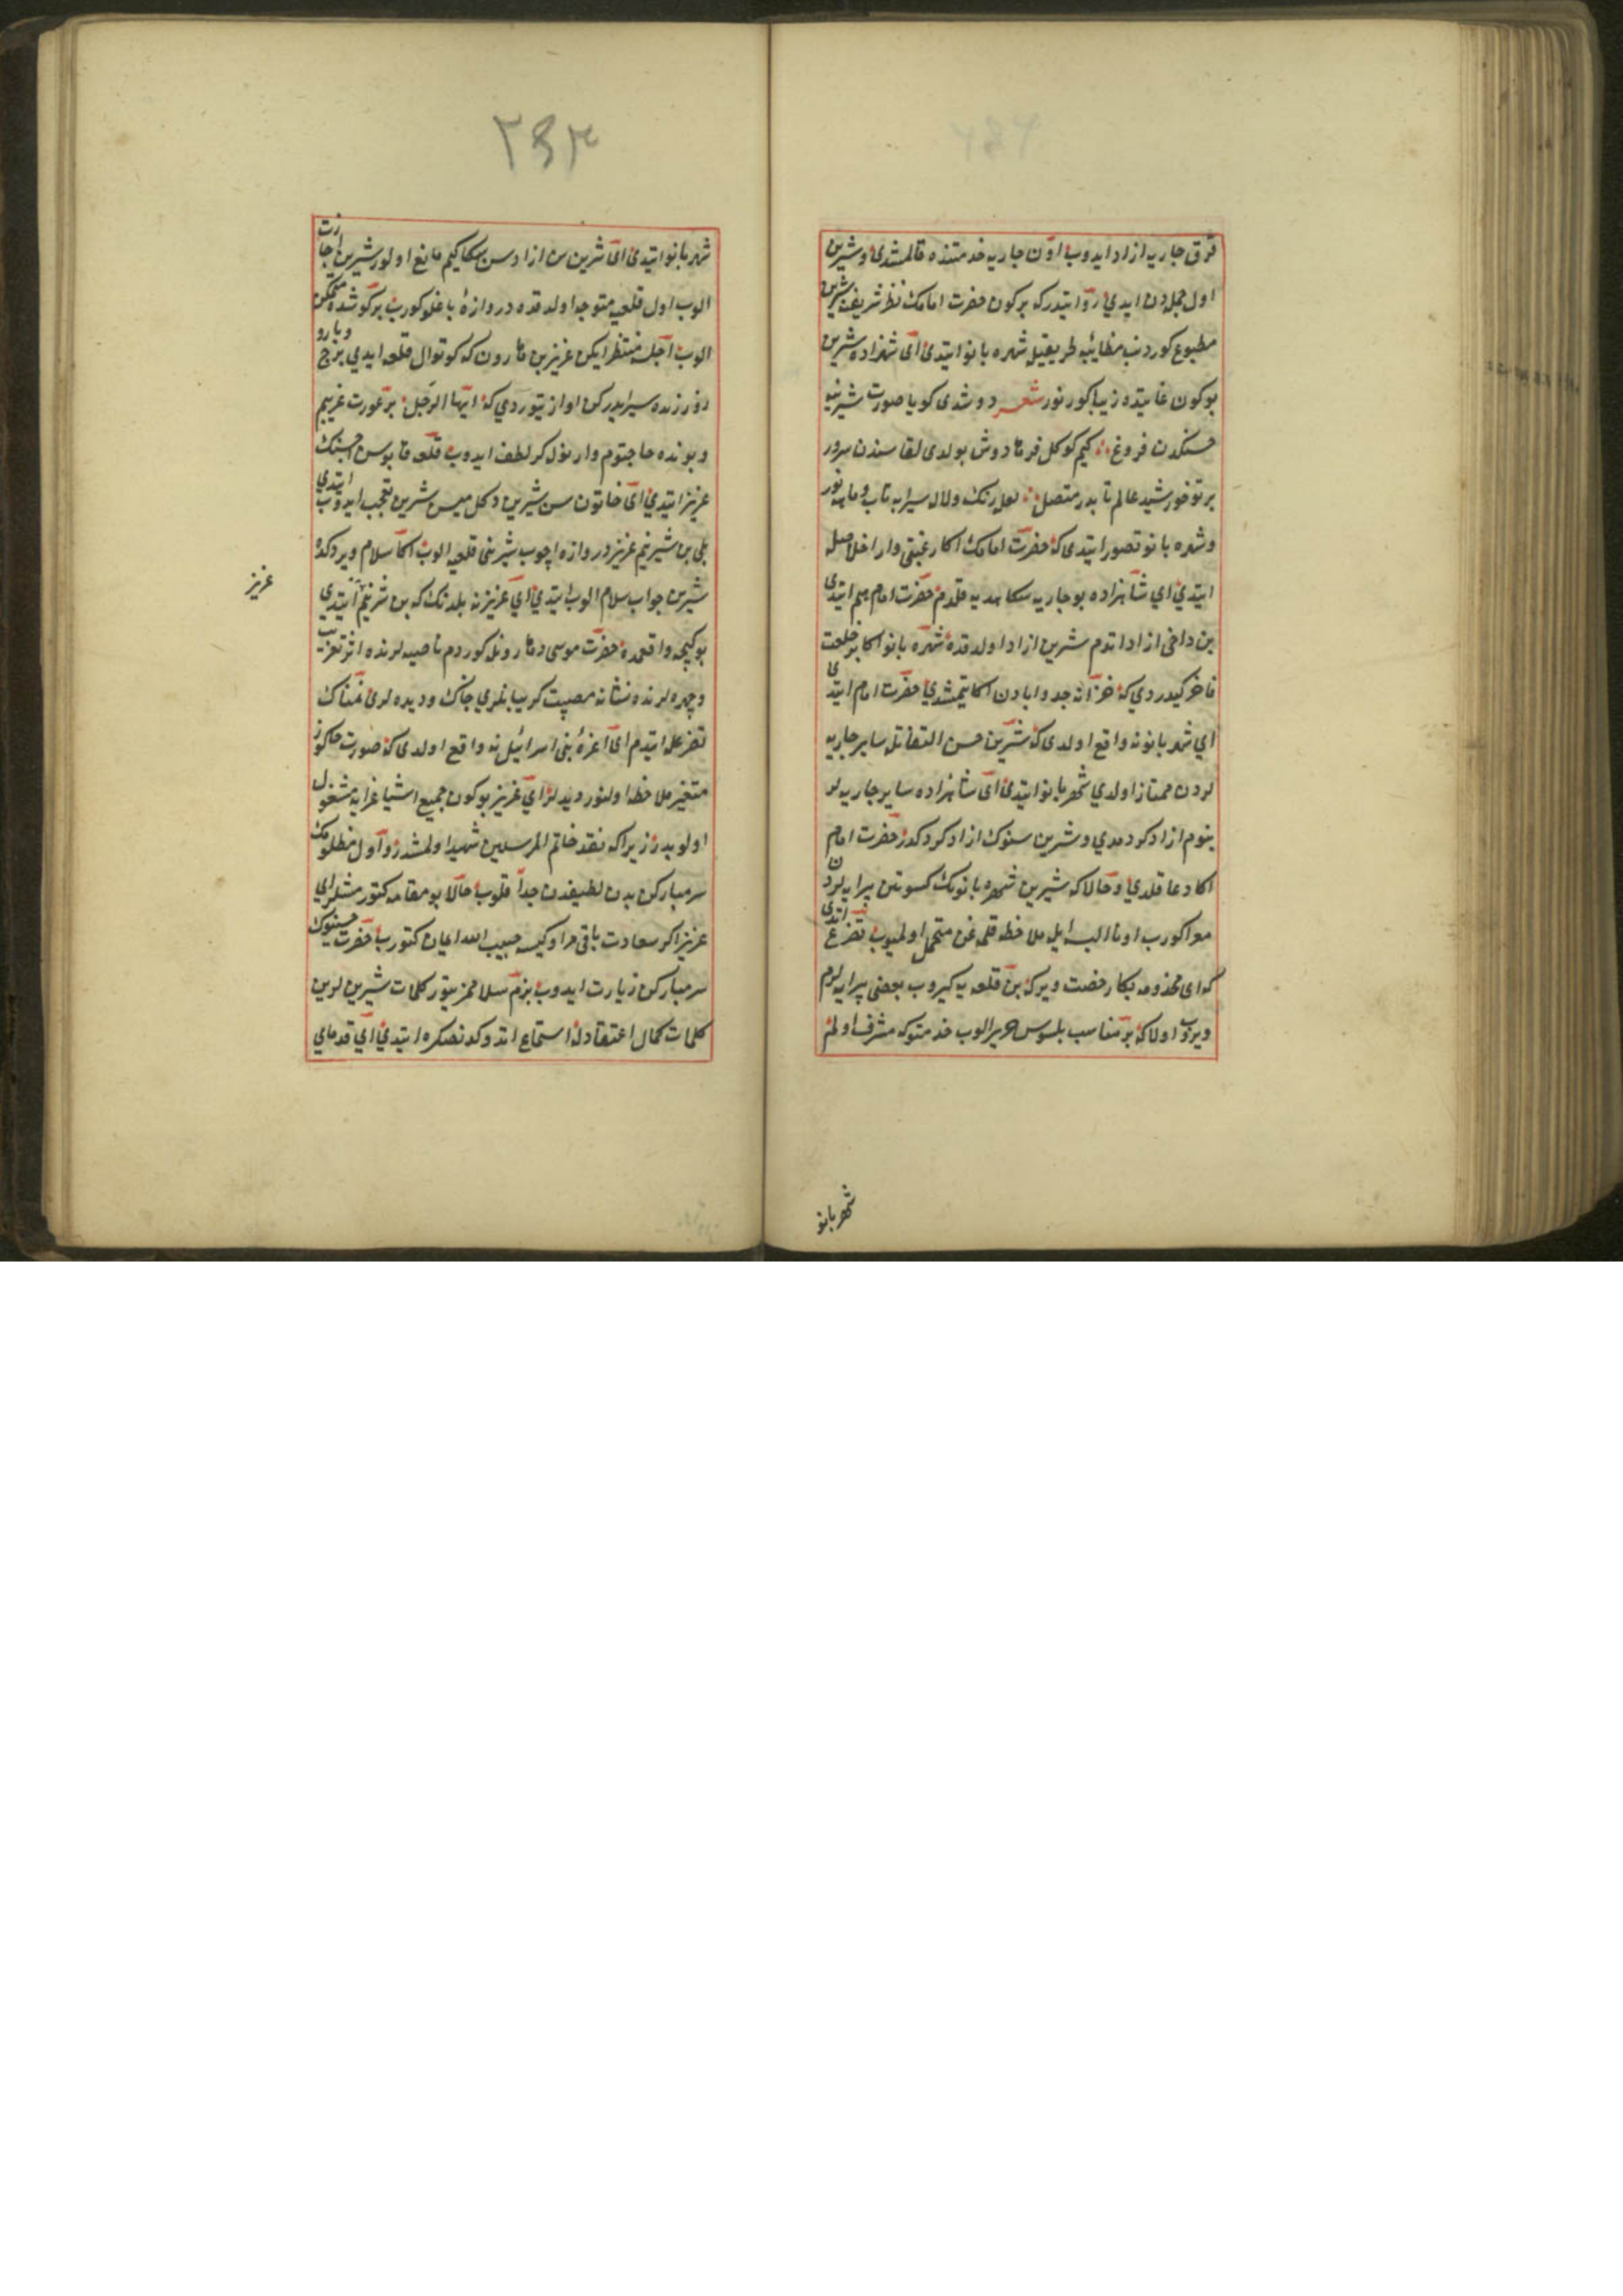 قرق جاریه ازاد ایدوب اون جاریه خدمتنده قالمشدی وشیرین
اول جمله‌دن ایدی روایتدرکه برکون حضرت امامک نظر شریفنه شیرین
مطبوع کورینب مطایبه طریقیله شهره بانو ایتدی ای شهزاده شیرین
بوکون غایتده زیبا کورنور شعر دوشدی کویا صورت شیرینه
حسنکدن فروغ کیم کوکل فرهادوش بولدی لقاسندن سرور
برتو خورشید عالم تابدر متصل لعل رنک ولال سیرابه تاب وماهه نور
وشهره بانو تصور ایتدی که حضرت امامک اکا رغبتی وار اخلاصله
ایتدی ای شاهزاده بو جاریه سکا هدیه قلدم حضرت امام هم ایتدی
بن داخی ازاد اتدم شیرین ازاد اولدقده شهره بانو اکا بر خلعت
فاخر کیدردی که خزانه جد وابادن اکا یتمشدی حضرت امام ایتدی
ای شهر بانو نه واقع اولدی که شیرین حسن التفاتله سایر جاریه
لردن ممتاز اولدی شهر بانو ایتدی ای شاهزاده سایر جاریه لر
بنوم ازاد کردمدی وشیرین سنوک ازاد کردکدر حضرت امام
اکا دعا قلدی وحالا که شیرین شهره بانونک کسوتن پیرایه لردن
معرا کورب اونا البسه ایله ملاحظه قلمغن متحمل اولمیوب تضرع اتدی
که ای مخذومه بکا رخصت ویرکه بن قلعه یه کیروب بعضی پیرایه لرم
ویروب اولا که بر مناسب بلوس حریر الوب خدمتوکه مشرف اولم
شهربانو
۲۶۴
شهر بانو ایتدی ای شیرین سن ازادسن سکا کیم مانع اولور شیرین اجازت
الوب اول قلعه‌یه متوجه اولدقده دروازه باغلو کورب بر کوشده متمکن
الوب اجله منتظر ایکن عزیز بن هارون که کوتوال قلعه ایدی برج وبارو
روزنده سیر ایدرکن اواز یتوردی که ایها الرجل بر عورت غریبم
وبونده حاجتوم وار نولکر لطف ایدوب قلعه قاپوسن اچسنک
عزیز ایتدی ای خاتون سن شیرین دکلمیسن شیرین تعجب ایدوب ایتدی
بلی بن شیرینم عزیز دروازه اچوب شیرینی قلعه‌یه الوب اکا سلام ویردکده
شیرین جواب سلام الوب ایتدی ای عزیز نه بلدنک که بن شرینم ایتدی
بوکیجه واقعمده حضرت موسی وهارونی کوردم ناصیه لرنده اثر تعزیت
وچهره لرنده نشانه مصیبت کریبانلری چاک ودیده لری نمناک
تضرعله ایتدم ای اعزه بنی اسرائیل نه واقع اولدی که صورت حالکوز
متغیر ملاحظه اولنور دیدلر ای عزیز بوکون جمیع اشیا عزایه مشغول
اولوبدر زیرا که نقد خاتم المرسلین شهید اولمشدر واول مظلومک
سر مبارکن بدن لطیفندن جدا قلوب حالا بو مقامه کتورمشلر ای
عزیز اکر سعادت باقی مراوکیسه حبیب الله ایمان کتورب حضرت حسینوک
سر مبارکن زیارت ایدوب بزم سلاممز یتور کلمات شیرین لرین
کلمات کمال اعتقادله استماع اتدوکدنصکره ایتدی ای قدمای
عزیز